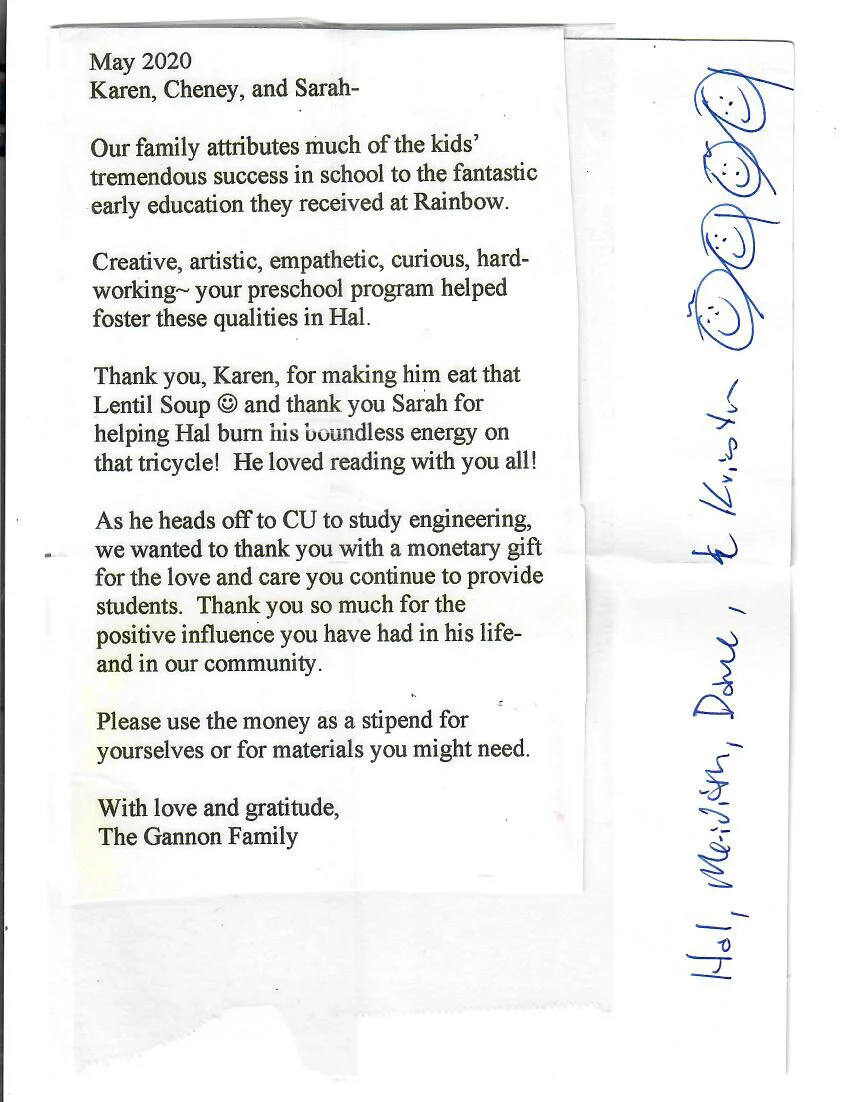 May 2020
Karen, Cheney, and Sarah-
Our family attributes much of the kids’
tremendous success in school to the fantastic
early education they received at Rainbow.
Creative, artistic, empathetic, curious, hard-
working~ your preschool program helped
foster these qualities in Hal.
Thank you, Karen, for making him eat that
Lentil Soup ☺ and thank you Sarah for
helping Hal burn his boundless energy on
that tricycle!  He loved reading with you all!
As he heads off to CU to study engineering,
we wanted to thank you with a monetary gift
for the love and care you continue to provide
students.  Thank you so much for the
positive influence you have had in his life-
and in our community.
Please use the money as a stipend for
yourselves or for materials you might need.
With love and gratitude,
The Gannon Family
Hal, & Kristen